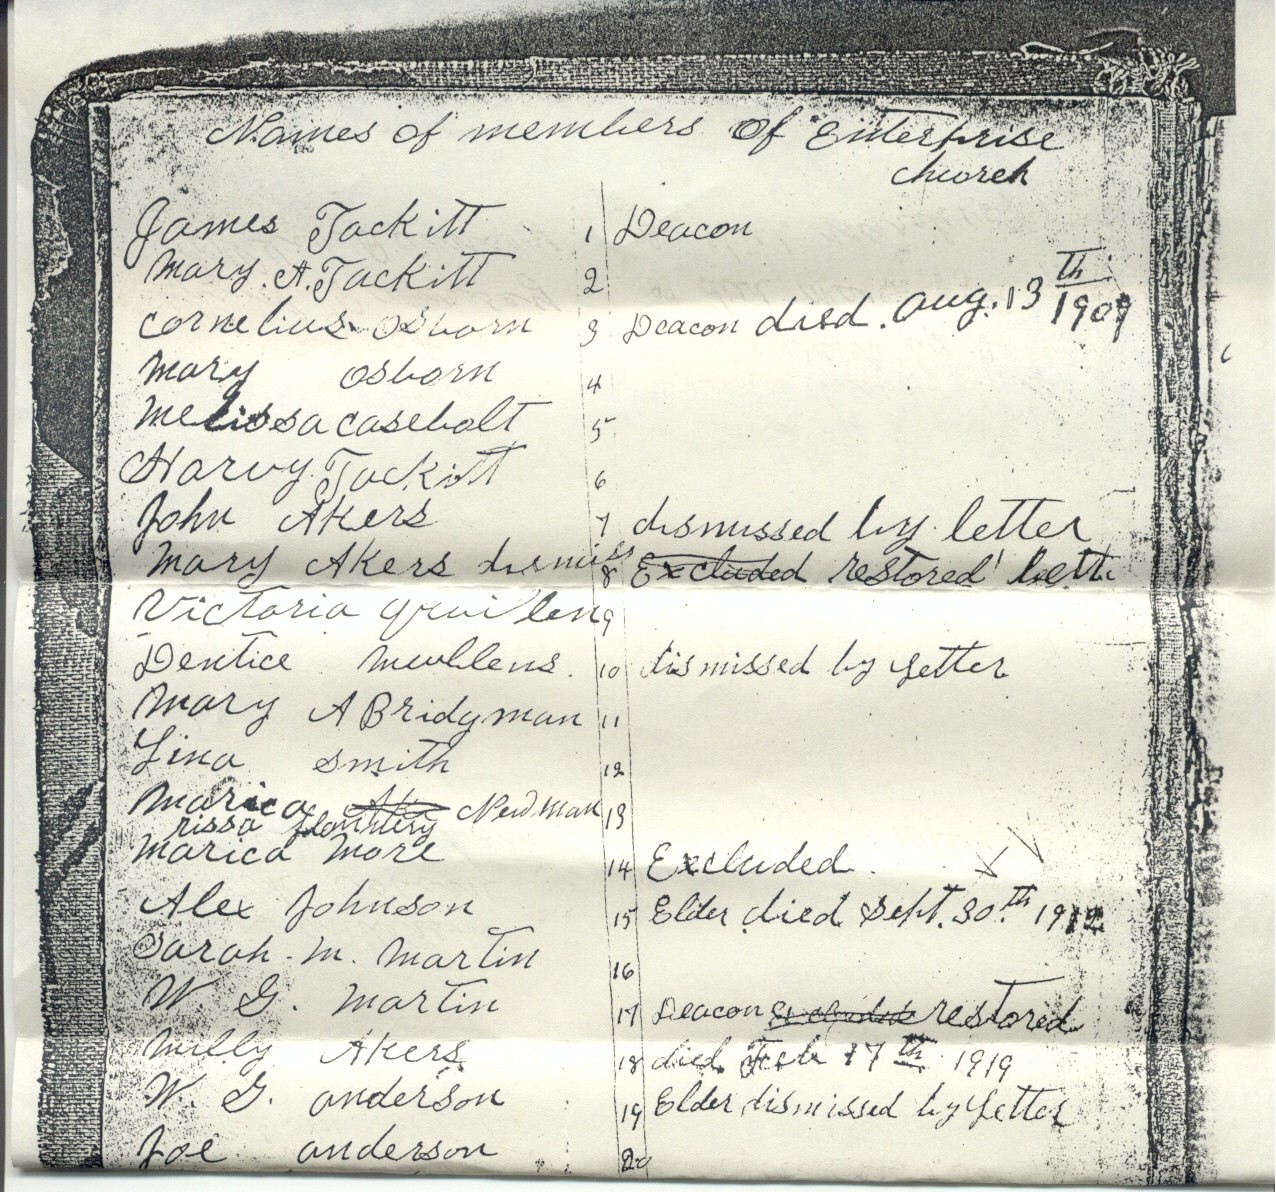 Names of members of Enterprise
church
James Tackitt 1 Deacon
Mary. A. Tackitt 2
cornelius Osborn 3 Deacon died. Aug. 13th 1909
Mary Osborn 4
Melissa casebolt 5
Harvy Tackitt 6
John Akers 7 dismissed by letter
Mary Akers dismiss 8 Excluded restored
Victoria 9
Dentice Mullens. 10 dismissed by Letter
Mary A Bridgman 11
Lina Smith 12
Marica Newman 13
rissa
Marica More 14 Excluded.
Alex Johnson 15 Elder died Sept. 30.th 1912
Sarah. M. Martin 16
W. G. Martin 17 Deacon restored
Milly Akers 18 died Feb 17th 1919
W. G. anderson 19 Elder dismissed by Letter
Joe anderson 20